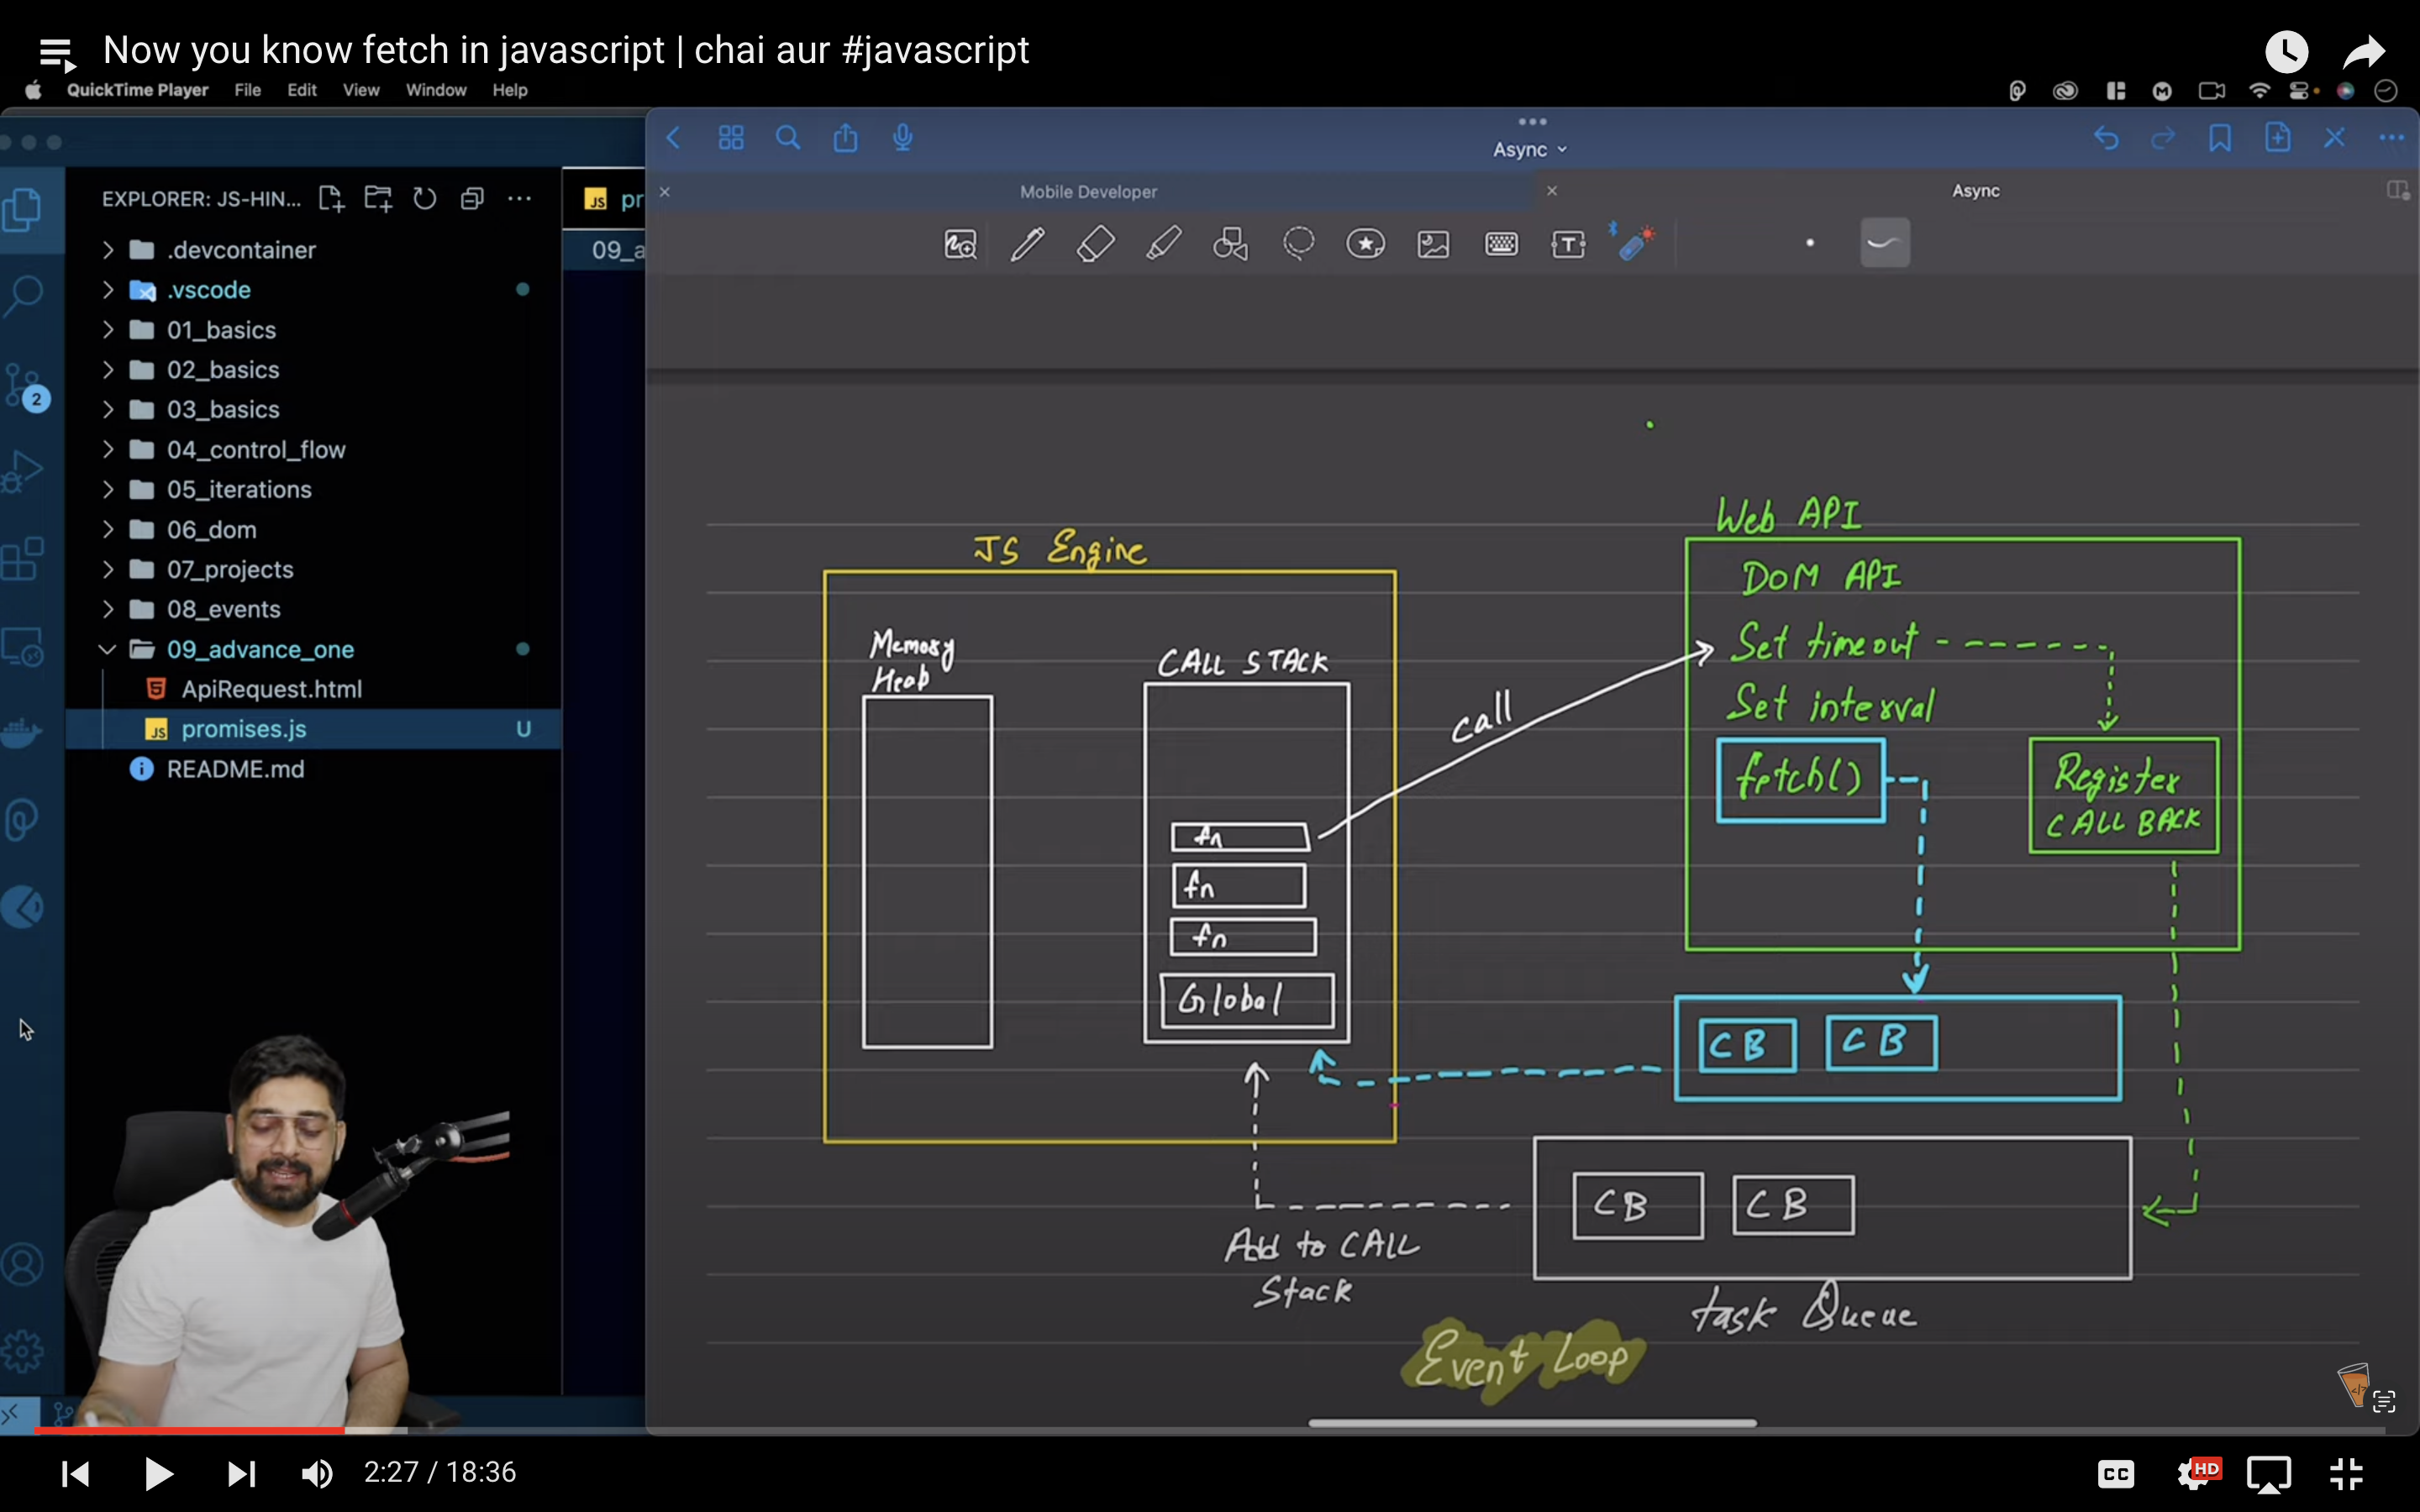 Now you know fetch in javascript | chai aur #javascript
QuickTime Player File Edit View Window Help
Async
Mobile Developer
Async
EXPLORER: JS-HIN...
JS pr
.devcontainer
09_a
.vscode
01_basics
02_basics
03_basics
2
04_control_flow
05_iterations
06_dom
07_projects
08_events
09_advance_one
ApiRequest.html
JS promises.js U
README.md
JS Engine
Memory
Heap
CALL STACK
fn
fn
fn
Global
call
Web API
DOM API
Set timeout
Set interval
fetch()
Register
CALL BACK
CB CB
CB CB
Add to CALL
Stack
Task Queue
Event Loop
2:27 / 18:36
CC
HD